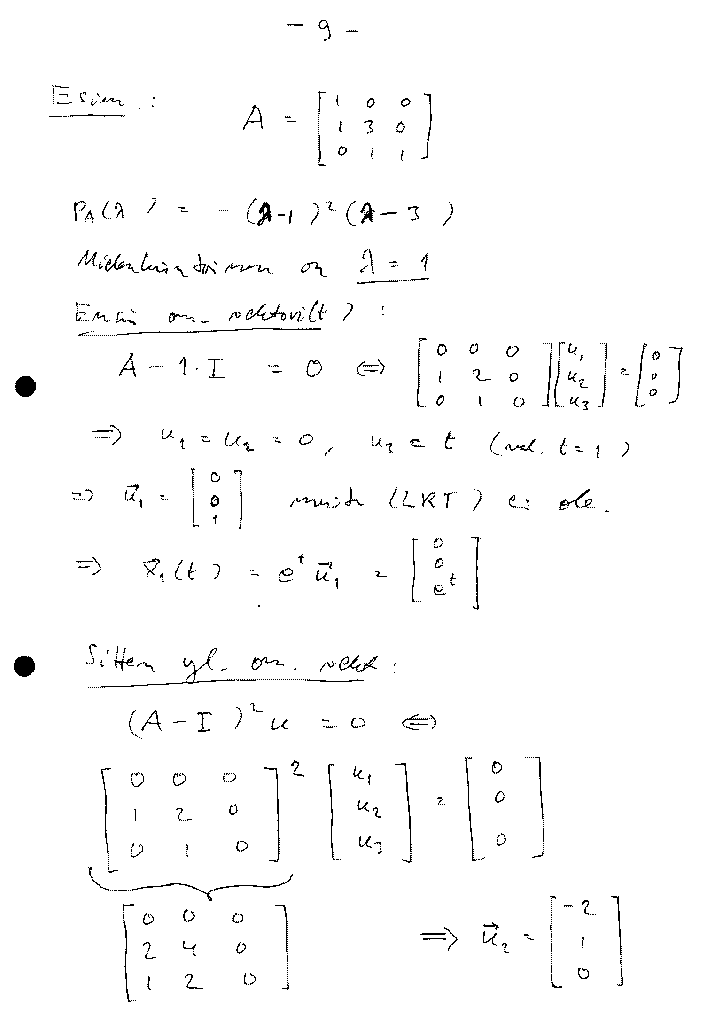 - 9 -
Esim.:
A = [1 0 0; 1 3 0; 0 1 1]
P_A(λ) = -(λ-1)²(λ-3)
on λ = 1
Ensin om. vektorit) :
A - 1·I = 0 ⇔ [0 0 0; 1 2 0; 0 1 0] [u₁; u₂; u₃] = [0; 0; 0]
⇒ u₁ = u₂ = 0, u₃ = t (val. t=1)
⇒ u⃗₁ = [0; 0; 1] muita (LRT) ei ole.
⇒ x⃗₁(t) = eᵗ u⃗₁ = [0; 0; eᵗ]
Sitten yl. om. vekt:
(A - I)² u = 0 ⇔
[0 0 0; 1 2 0; 0 1 0]² [u₁; u₂; u₃] = [0; 0; 0]
[0 0 0; 2 4 0; 1 2 0] ⇒ u⃗₂ = [-2; 1; 0]